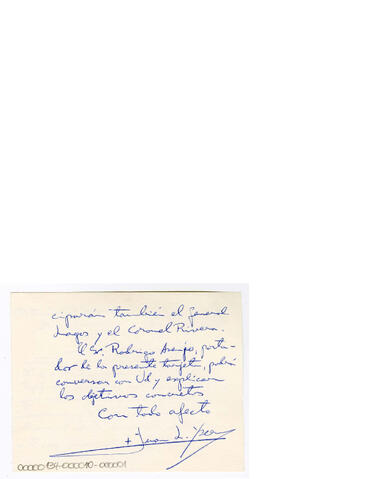 ciparán también el General
Lagos y el Coronel Rivera.
El Sr. Rodrigo Asenjo, porta-
dor de la presente tarjeta, podrá
conversar con Ud y explicar
los objetivos concretos
Con todo afecto
+ Juan L.
00000137-000010-000001